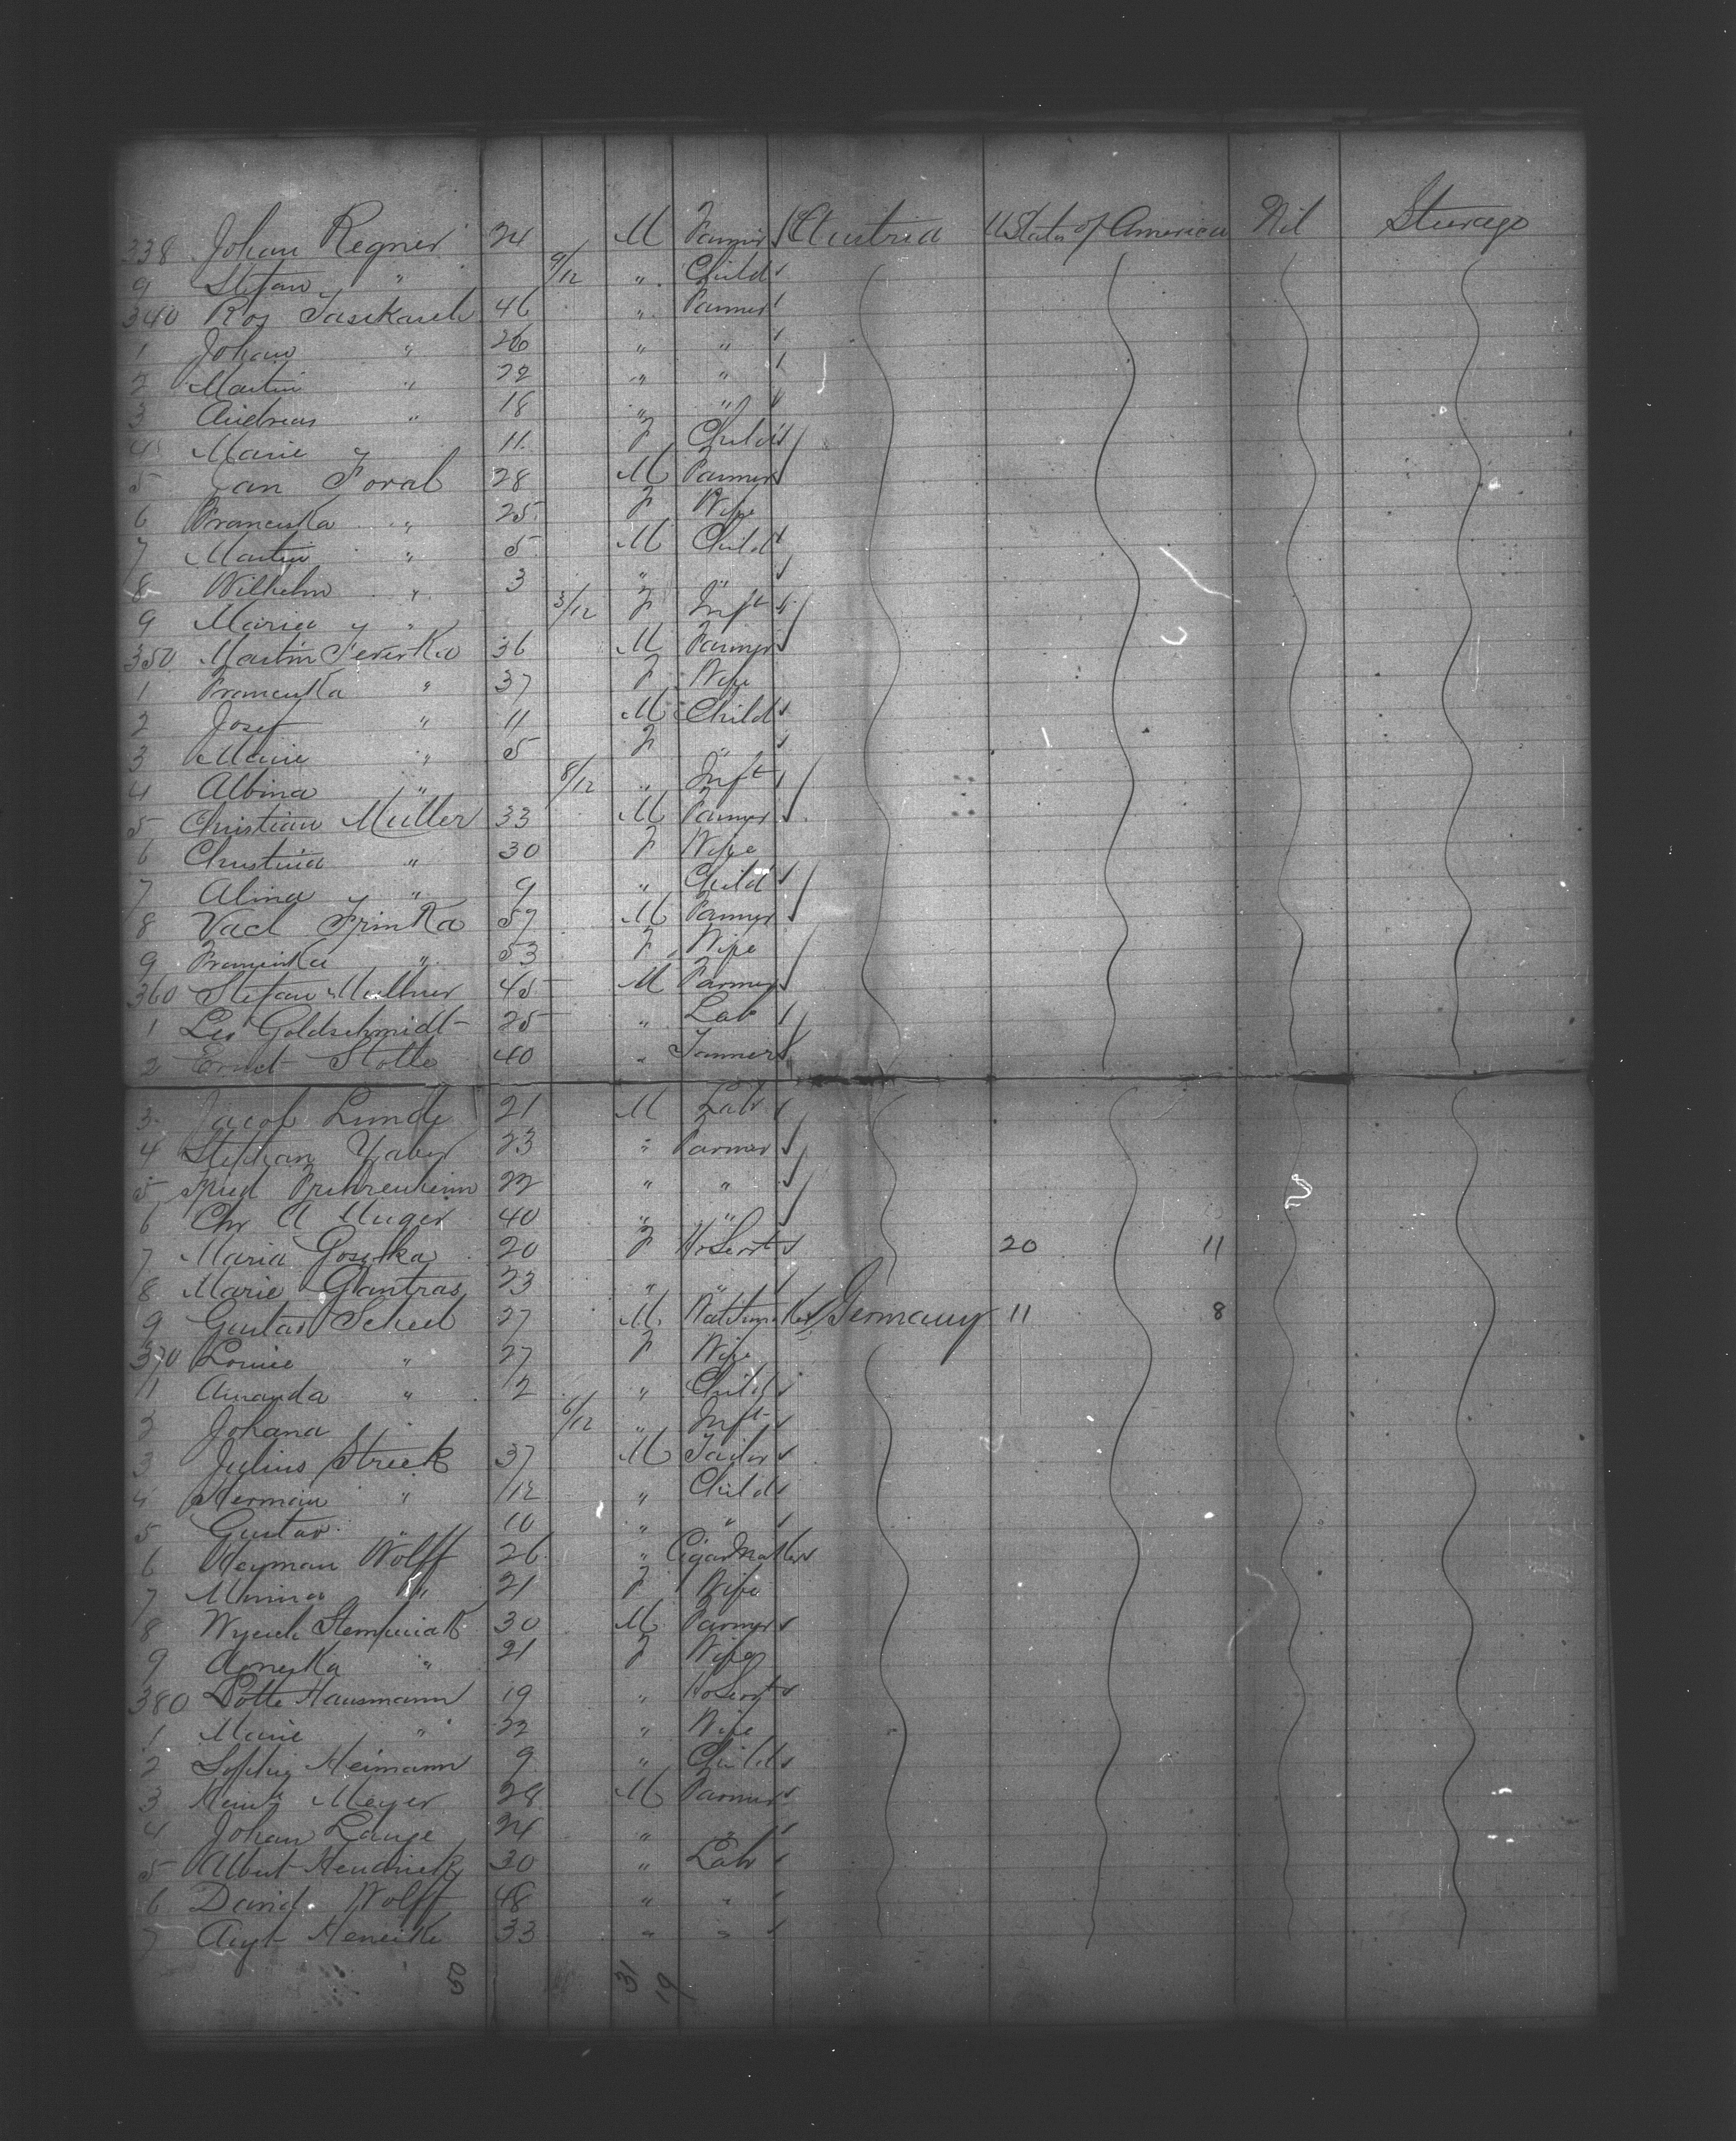 338 Johan Regner 24 M Farmer Austria U States of America Nil Steerage
9 Stefan " 9/12 " Child
340 46 " Farmer
1 Johan " 26 " "
2 Martin " 22 " "
3 Andreas " 18 " "
4 Marie " 11 F Child
5 Jan Foral 28 M Farmer
6 Franciska " 25 F Wife
7 Martin " 5 M Child
8 Wilhelm " 3 " "
9 Maria " 3/12 F Inft
350 Martin 36 M Farmer
1 Franciska " 37 F Wife
2 Josef " 11 M Child
3 Marie " 5 F "
4 Albina " 8/12 " Inft
5 Christian Müller 33 M Farmer
6 Christina " 30 F Wife
7 Alina " 9 " Child
8 Vacl 57 M Farmer
9 Franciska " 53 F Wife
360 Stefan Mullner 45 M Farmer
1 Leo Goldschmidt 25 " Lab
2 Ernst Stolte 40 " Tanner
3 Jacob 21 M Lab
4 Stephan 23 " Farmer
5 22 " "
6 Chr A 40 " "
7 Maria 20 F HoServt 20 11
8 Marie 23 " "
9 Gustav Scheel 27 M Germany 11 8
370 Louise " 27 F Wife
1 Amanda " 2 " Child
2 Johana " 6/12 " Inft
3 Julius Streck 37 M Tailor
4 Herman " 12 " Child
5 Gustav " 10 " "
6 Heyman Wolff 26 " Cigar Maker
7 Minna " 21 F Wife
8 30 M Farmer
9 " 21 F Wife
380 Lotte Hausmann 19 " HoServt
1 Marie " 22 " Wife
2 Sophie Heimann 9 " Child
3 Meyer 28 M Farmer
4 Johan Lange 24 " "
5 Albert 30 " Lab
6 David Wolff 48 " "
7 Augt 33 " "
50 31 19